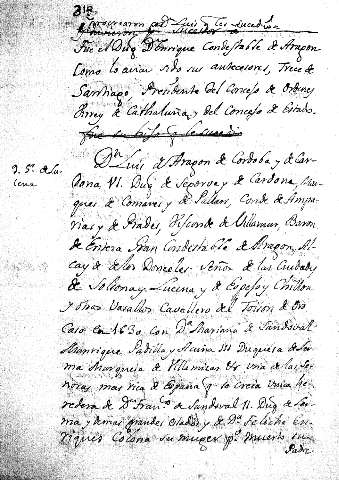 318
procrearon a D. Luis q les sucedio
Fue el Duq. D. Enrique Condestable de Aragon
como lo avian sido sus antecesores, Trece de
Santiago, Presidente del Consejo de Ordenes
Virrey de Cathaluña, y del Consejo de Estado.
fue su hijo q le sucedio
D.n Luis de Aragon de Cordoba y de Car-
dona VI. Duq. de Segorve y de Cardona, Mar-
ques de Comares y de Pallars, Conde de Ampu-
rias y de Prades, Visconde de Villamur, Baron
de Entenza Gran Condestable de Aragon, Al-
cayde de los Donceles Señor de las Ciudades
de Solsona, y Lucena y de Espejo y Chillon
y otros Vasallos Cavallero del Toison de Oro
Caso en 1630. con D.a Mariana de Sandoval
Manrique Padilla y Acuña III Duquesa de Ler-
ma Marquesa de Villamizar &c una de las Se-
ñoras mas rica de España q la crecia unica he-
redera de D.n Fran.co de Sandoval II. Duq. de Ler-
ma y demas grandes estados y de D.a Feliche En-
riquez Colona su muger p.r muerto su
Padre
3. S.r de Lu-
cena